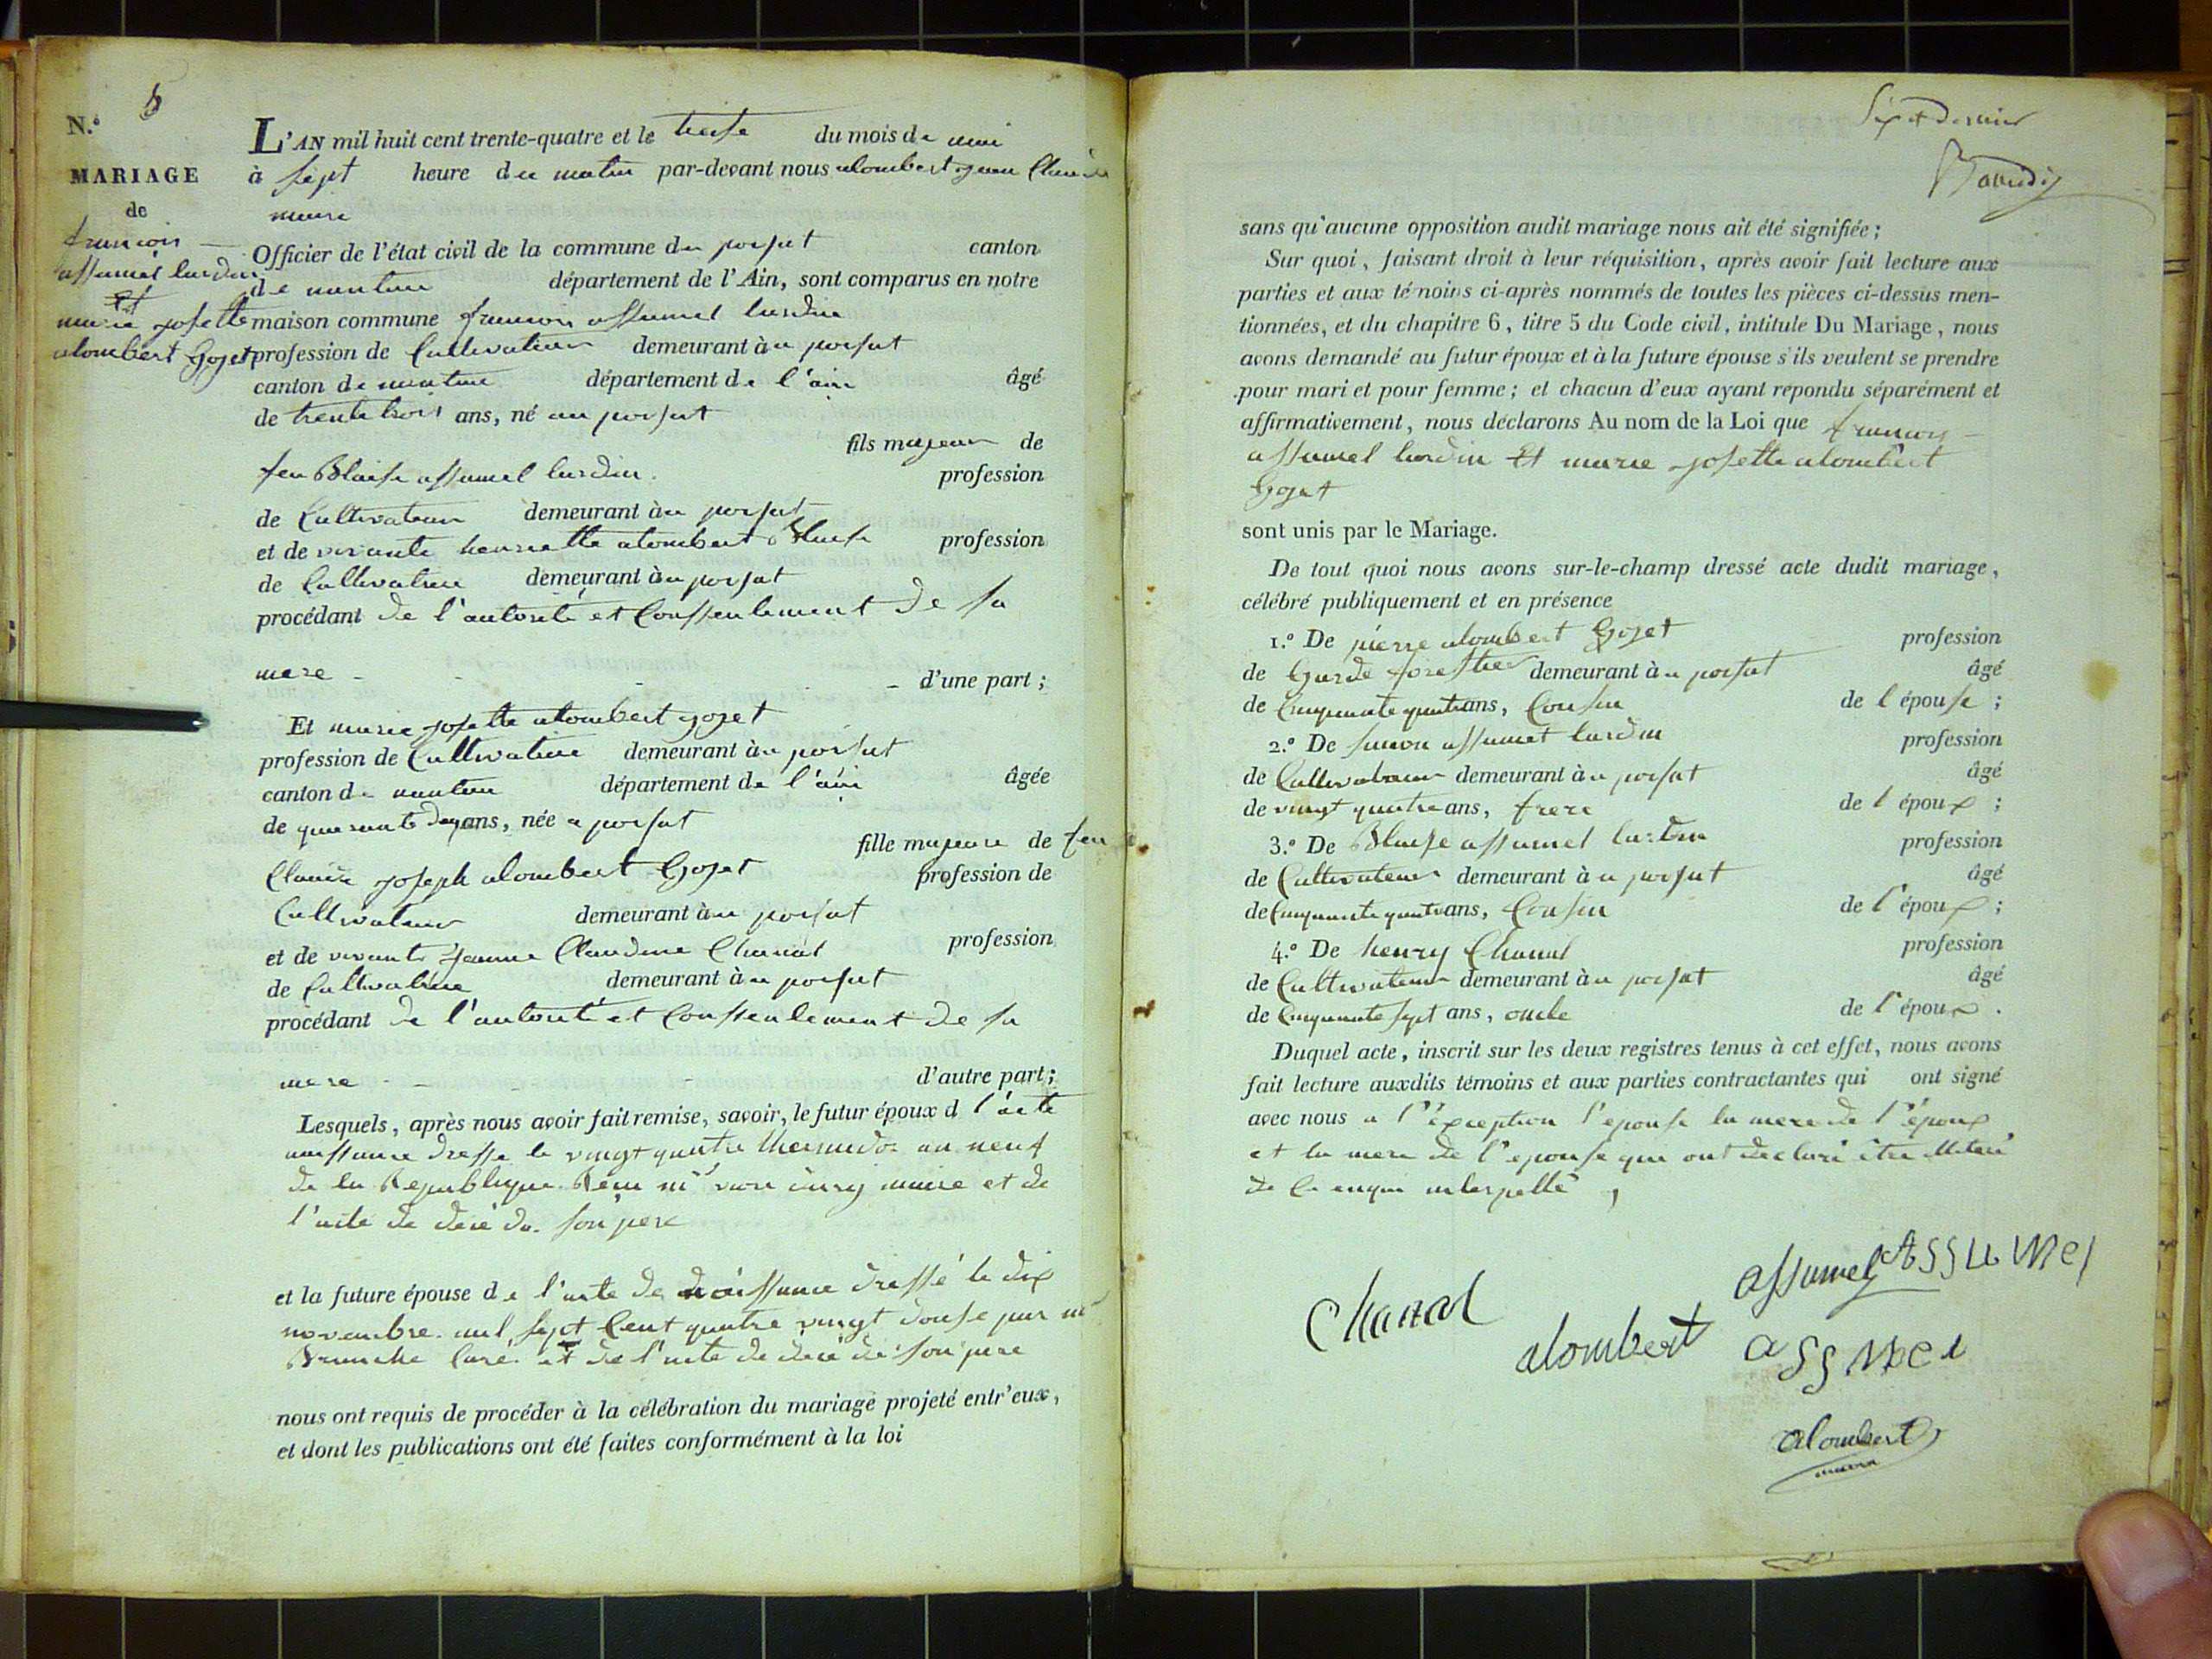 N.º 5
MARIAGE
de
françois
assumel lurdin
et
marie josette
alombert Gojet
L'AN mil huit cent trente-quatre et le treise du mois de mai
à sept heure du matin par-devant nous alombert jean Claude
maire
Officier de l'état civil de la commune du poisat canton
de nantua département de l'Ain, sont comparus en notre
maison commune françois assumel lurdin
profession de Cultivateur demeurant à u poisat
canton de nantua département de l'ain âgé
de trente trois ans, né au poisat
fils majeur de
feu Blaise assumel lurdin profession
de Cultivateur demeurant à u poisat
et de vivante henriette alombert Blaise profession
de Cultivatrice demeurant à u poisat
procédant de l'autorité et Conssentement de sa
mere d'une part ;
Et marie josette alombert gojet
profession de Cultivatrice demeurant à u poisat
canton de nantua département de l'ain âgée
de quarante deux ans, née a poisat
fille majeure de feu
Claude joseph alombert Gojet profession de
Cultivateur demeurant à u poisat
et de vivante jeanne Claudine Chanal profession
de Cultivatrice demeurant à u poisat
procédant de l'autorité et Conssentement de sa
mere d'autre part ;
Lesquels, après nous avoir fait remise, savoir, le futur époux d l'acte
naissance dresse le vingt quatre thermidor an neuf
de la Republique maire et de
l'acte de décé de son pere
et la future épouse de l'acte de naissance dressé le dix
novembre mil sept Cent quatre vingt douse par mr
Curé et de l'acte de décé de son pere
nous ont requis de procéder à la célébration du mariage projeté entr'eux,
et dont les publications ont été faites conformément à la loi
Six et dernier
sans qu'aucune opposition audit mariage nous ait été signifiée ;
Sur quoi, faisant droit à leur réquisition, après avoir fait lecture aux
parties et aux témoins ci-après nommés de toutes les pièces ci-dessus men-
tionnées, et du chapitre 6, titre 5 du Code civil, intitulé Du Mariage, nous
avons demandé au futur époux et à la future épouse s'ils veulent se prendre
pour mari et pour femme ; et chacun d'eux ayant répondu séparément et
affirmativement, nous déclarons Au nom de la Loi que françois
assumel lurdin Et marie josette alombert
Gojet
sont unis par le Mariage.
De tout quoi nous avons sur-le-champ dressé acte dudit mariage,
célébré publiquement et en présence
1.º De pierre alombert Gojet profession
de Garde forestier demeurant à u poisat âgé
de Cinquante quatre ans, Cousin de l épouse ;
2.º De simon assumel lurdin profession
de Cultivateur demeurant à u poisat âgé
de vingt quatre ans, frere de l époux ;
3.º De Blaise assumel lurdin profession
de Cultivateur demeurant à u poisat âgé
de Cinquante quatre ans, Cousin de l'époux ;
4.º De henry Chanal profession
de Cultivateur demeurant à u poisat âgé
de Cinquante sept ans, oncle de l'époux .
Duquel acte, inscrit sur les deux registres tenus à cet effet, nous avons
fait lecture auxdits témoins et aux parties contractantes qui ont signé
avec nous a l'éxception l'epouse la mere de l'époux
et la mere de l'epouse qui ont declaré être illiteré
de ce enquis interpellé
Chanal
alombert
assumel
ASSUMel
assmel
alombert
maire